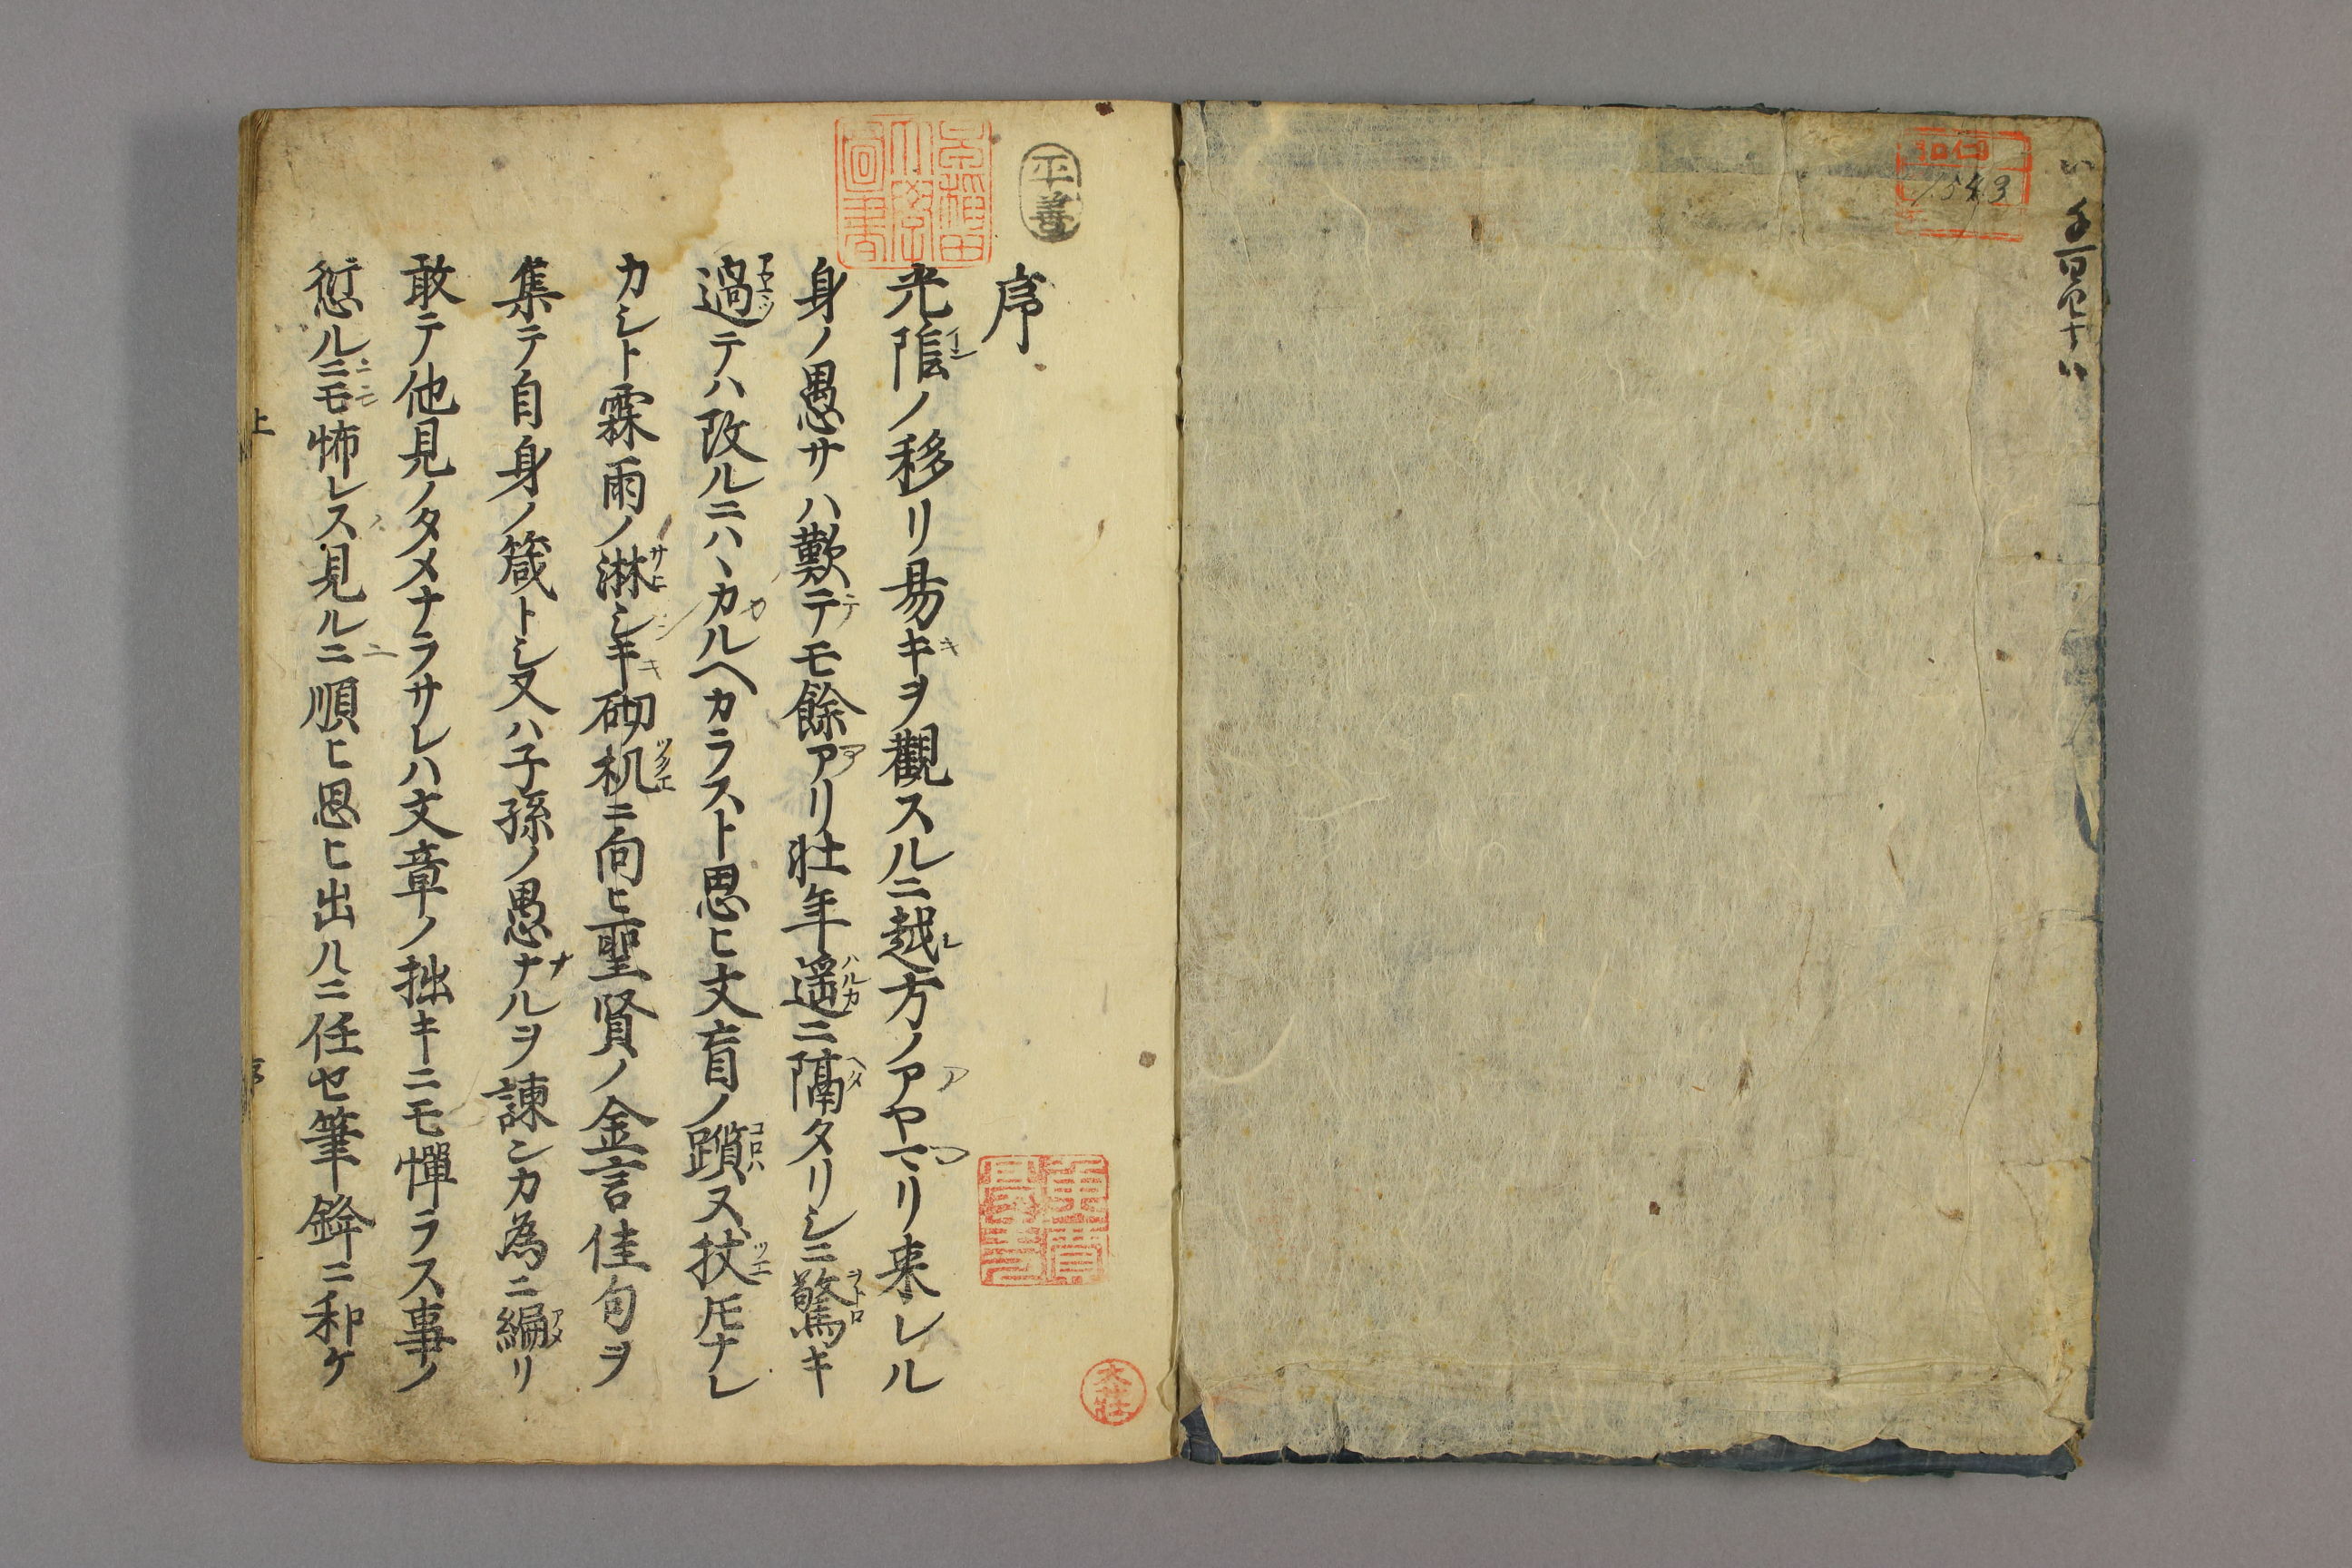 序
光陰ノ移リ易キヲ觀スルニ越方ノアヤマリ来レル
身ノ愚サハ歎テモ餘アリ壮年遥ニ隔タリシニ驚キ
過テハ改ルニハヽカルヘカラスト思ヒ文盲ノ躓ヌ杖𪜈ナレ
カシト霖雨ノ淋シキ砌机ニ向ヒ聖賢ノ金言佳句ヲ
集テ自身ノ箴トシ又ハ子孫ノ愚ナルヲ諌シカ為ニ編リ
敢テ他見ノタメナラサレハ文章ノ拙キニモ憚ラス事ノ
愆ルニモ怖レス見ルニ順ヒ思ヒ出ルニ任セ筆鋒ニ和ケ
上
序
平善
文荘
1543